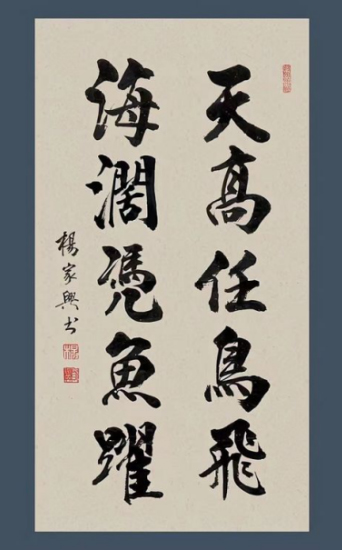 天高任鳥飛
海濶憑魚躍
楊家興书